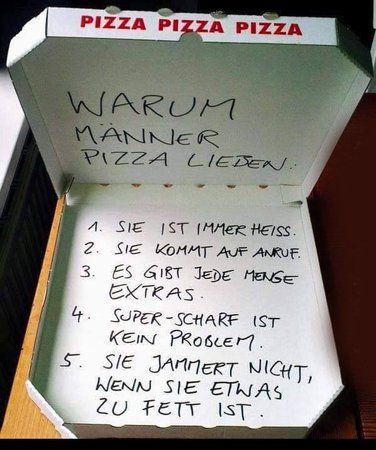 PIZZA PIZZA PIZZA
WARUM
MÄNNER
PIZZA LIEBEN:
1. SIE IST IMMER HEISS.
2. SIE KOMMT AUF ANRUF.
3. ES GIBT JEDE MENGE
EXTRAS.
4. SUPER-SCHARF IST
KEIN PROBLEM.
5. SIE JAMMERT NICHT,
WENN SIE ETWAS
ZU FETT IST.